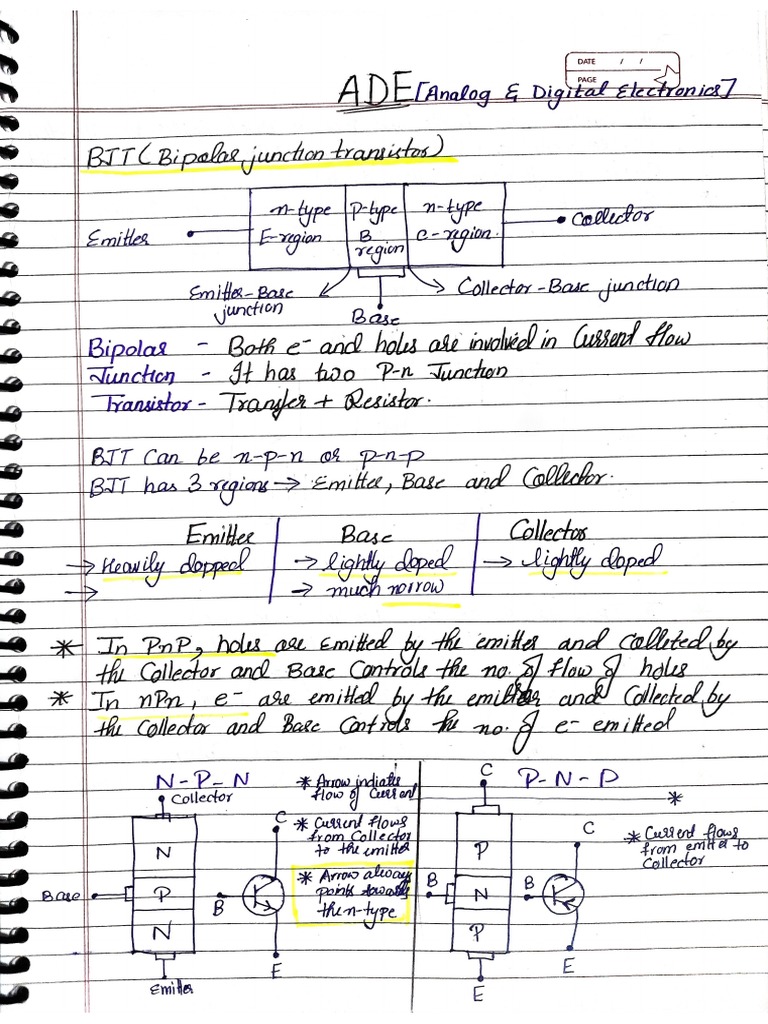 DATE / /
PAGE
ADE [Analog & Digital Electronics]
BJT (Bipolar junction transistor)
n-type P-type n-type
E-region B region C-region.
Emitter
Collector
Emitter-Base junction
Collector-Base junction
Base
Bipolar - Both e⁻ and holes are involved in Current flow
Junction - It has two P-n Junction
Transistor - Transfer + Resistor.
BJT Can be n-p-n or p-n-p
BJT has 3 regions → Emitter, Base and Collector.
Emitter Base Collector
→ Heavily dopped → lightly doped → lightly doped
→ → much narrow
* In PnP, holes are Emitted by the emitter and Colleted by
the Collector and Base Controls the no. of flow of holes
* In nPn, e⁻ are emitted by the emitter and Collected by
the Collector and Base Controls the no. of e⁻ emitted
N-P-N
Collector
N
P
N
Base
Emitter
C
B
E
* Arrow indiatis
flow of Current
* Current flows
from Collector
to the emitter
* Arrow always
points towards
the n-type
P-N-P
C
P
N
P
B
E
C
B
E
*
* Current flows
from emitter to
Collector